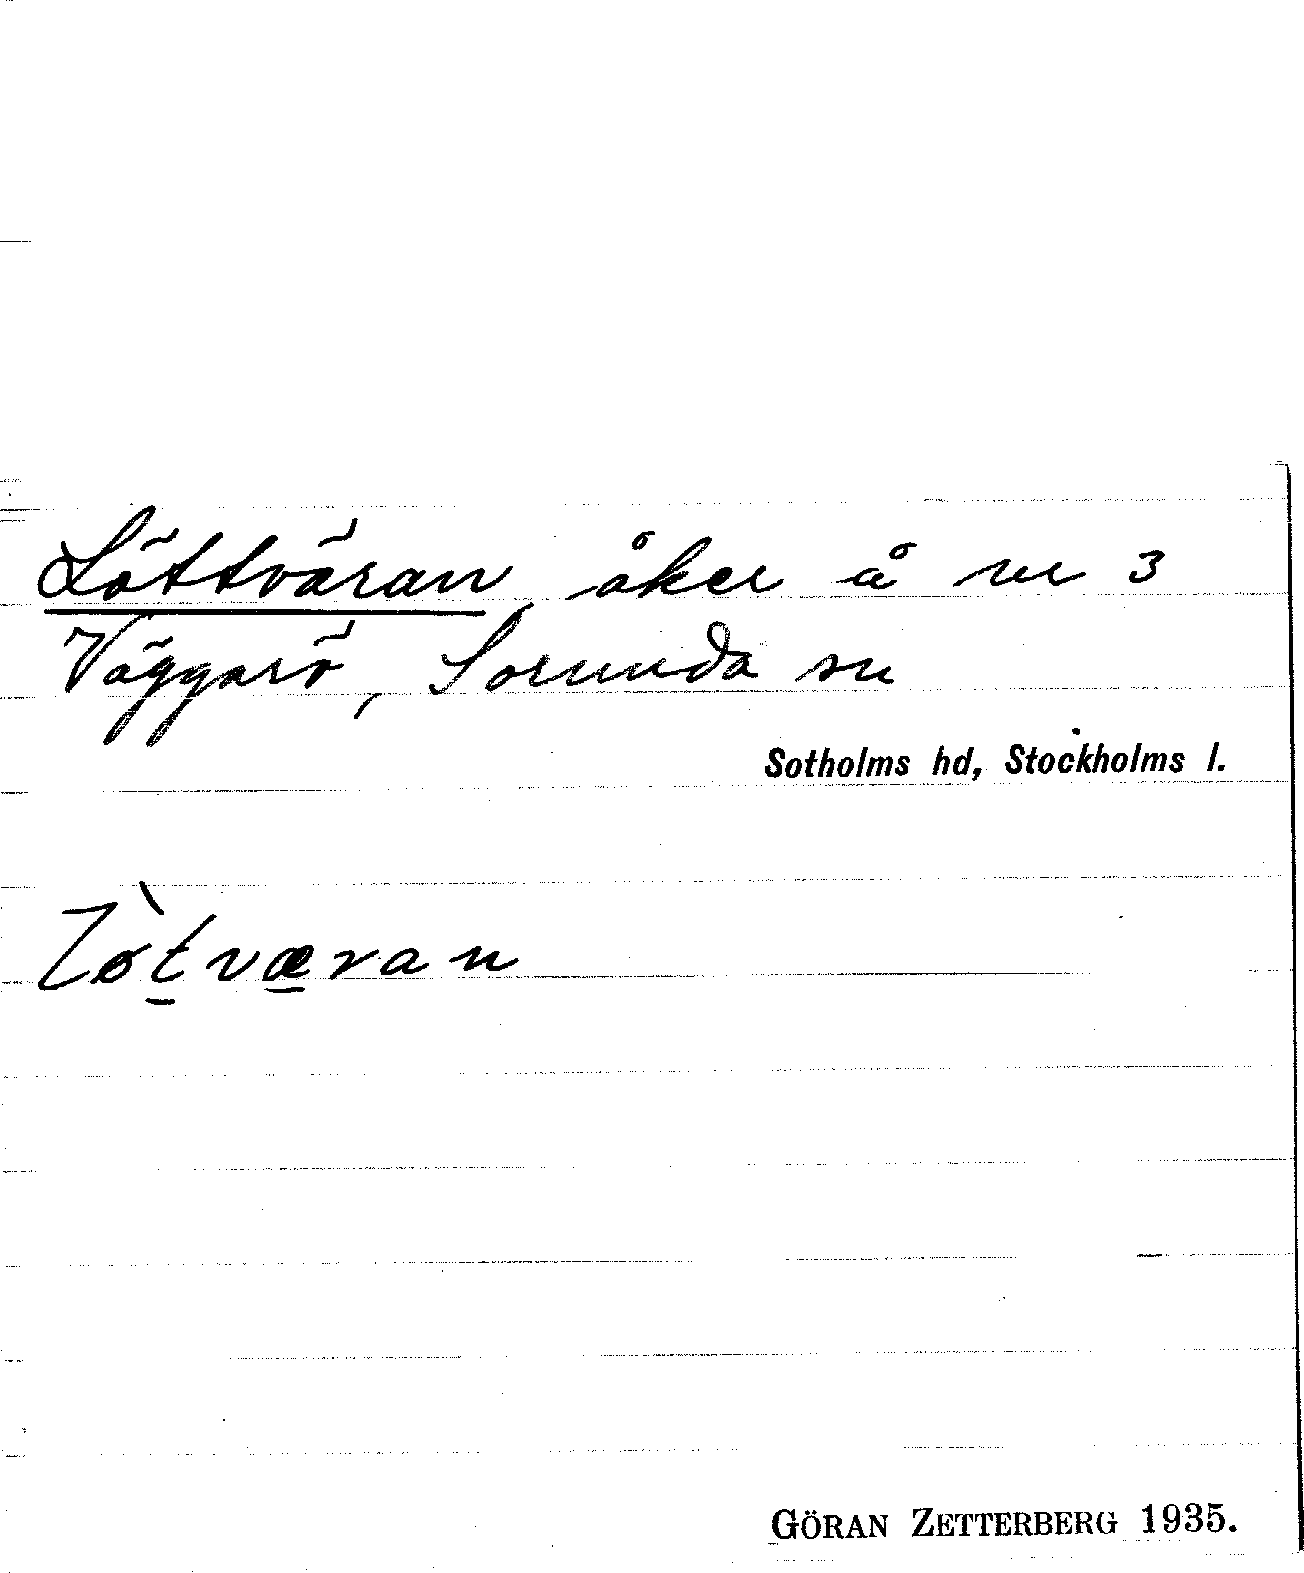 Löttväran, åker å nr 3
Väggarö, Sorunda sn
Sotholms hd, Stockholms l.
lø̀t̲væ̲ran
GÖRAN ZETTERBERG 1935.